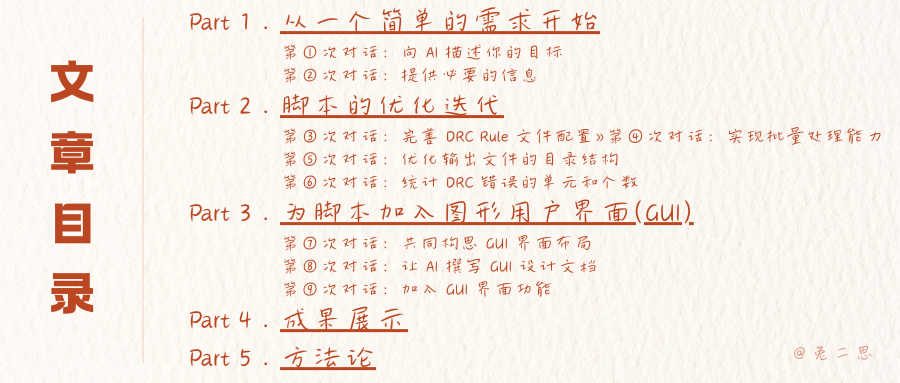 文章目录
Part 1 . 从一个简单的需求开始
第①次对话：向 AI 描述你的目标
第②次对话：提供必要的信息
Part 2 . 脚本的优化迭代
第③次对话：完善 DRC Rule 文件配置》第④次对话：实现批量处理能力
第⑤次对话：优化输出文件的目录结构
第⑥次对话：统计 DRC 错误的单元和个数
Part 3 . 为脚本加入图形用户界面(GUI)
第⑦次对话：共同构思 GUI 界面布局
第⑧次对话：让 AI 撰写 GUI 设计文档
第⑨次对话：加入 GUI 界面功能
Part 4 . 成果展示
Part 5 . 方法论
@兔二思